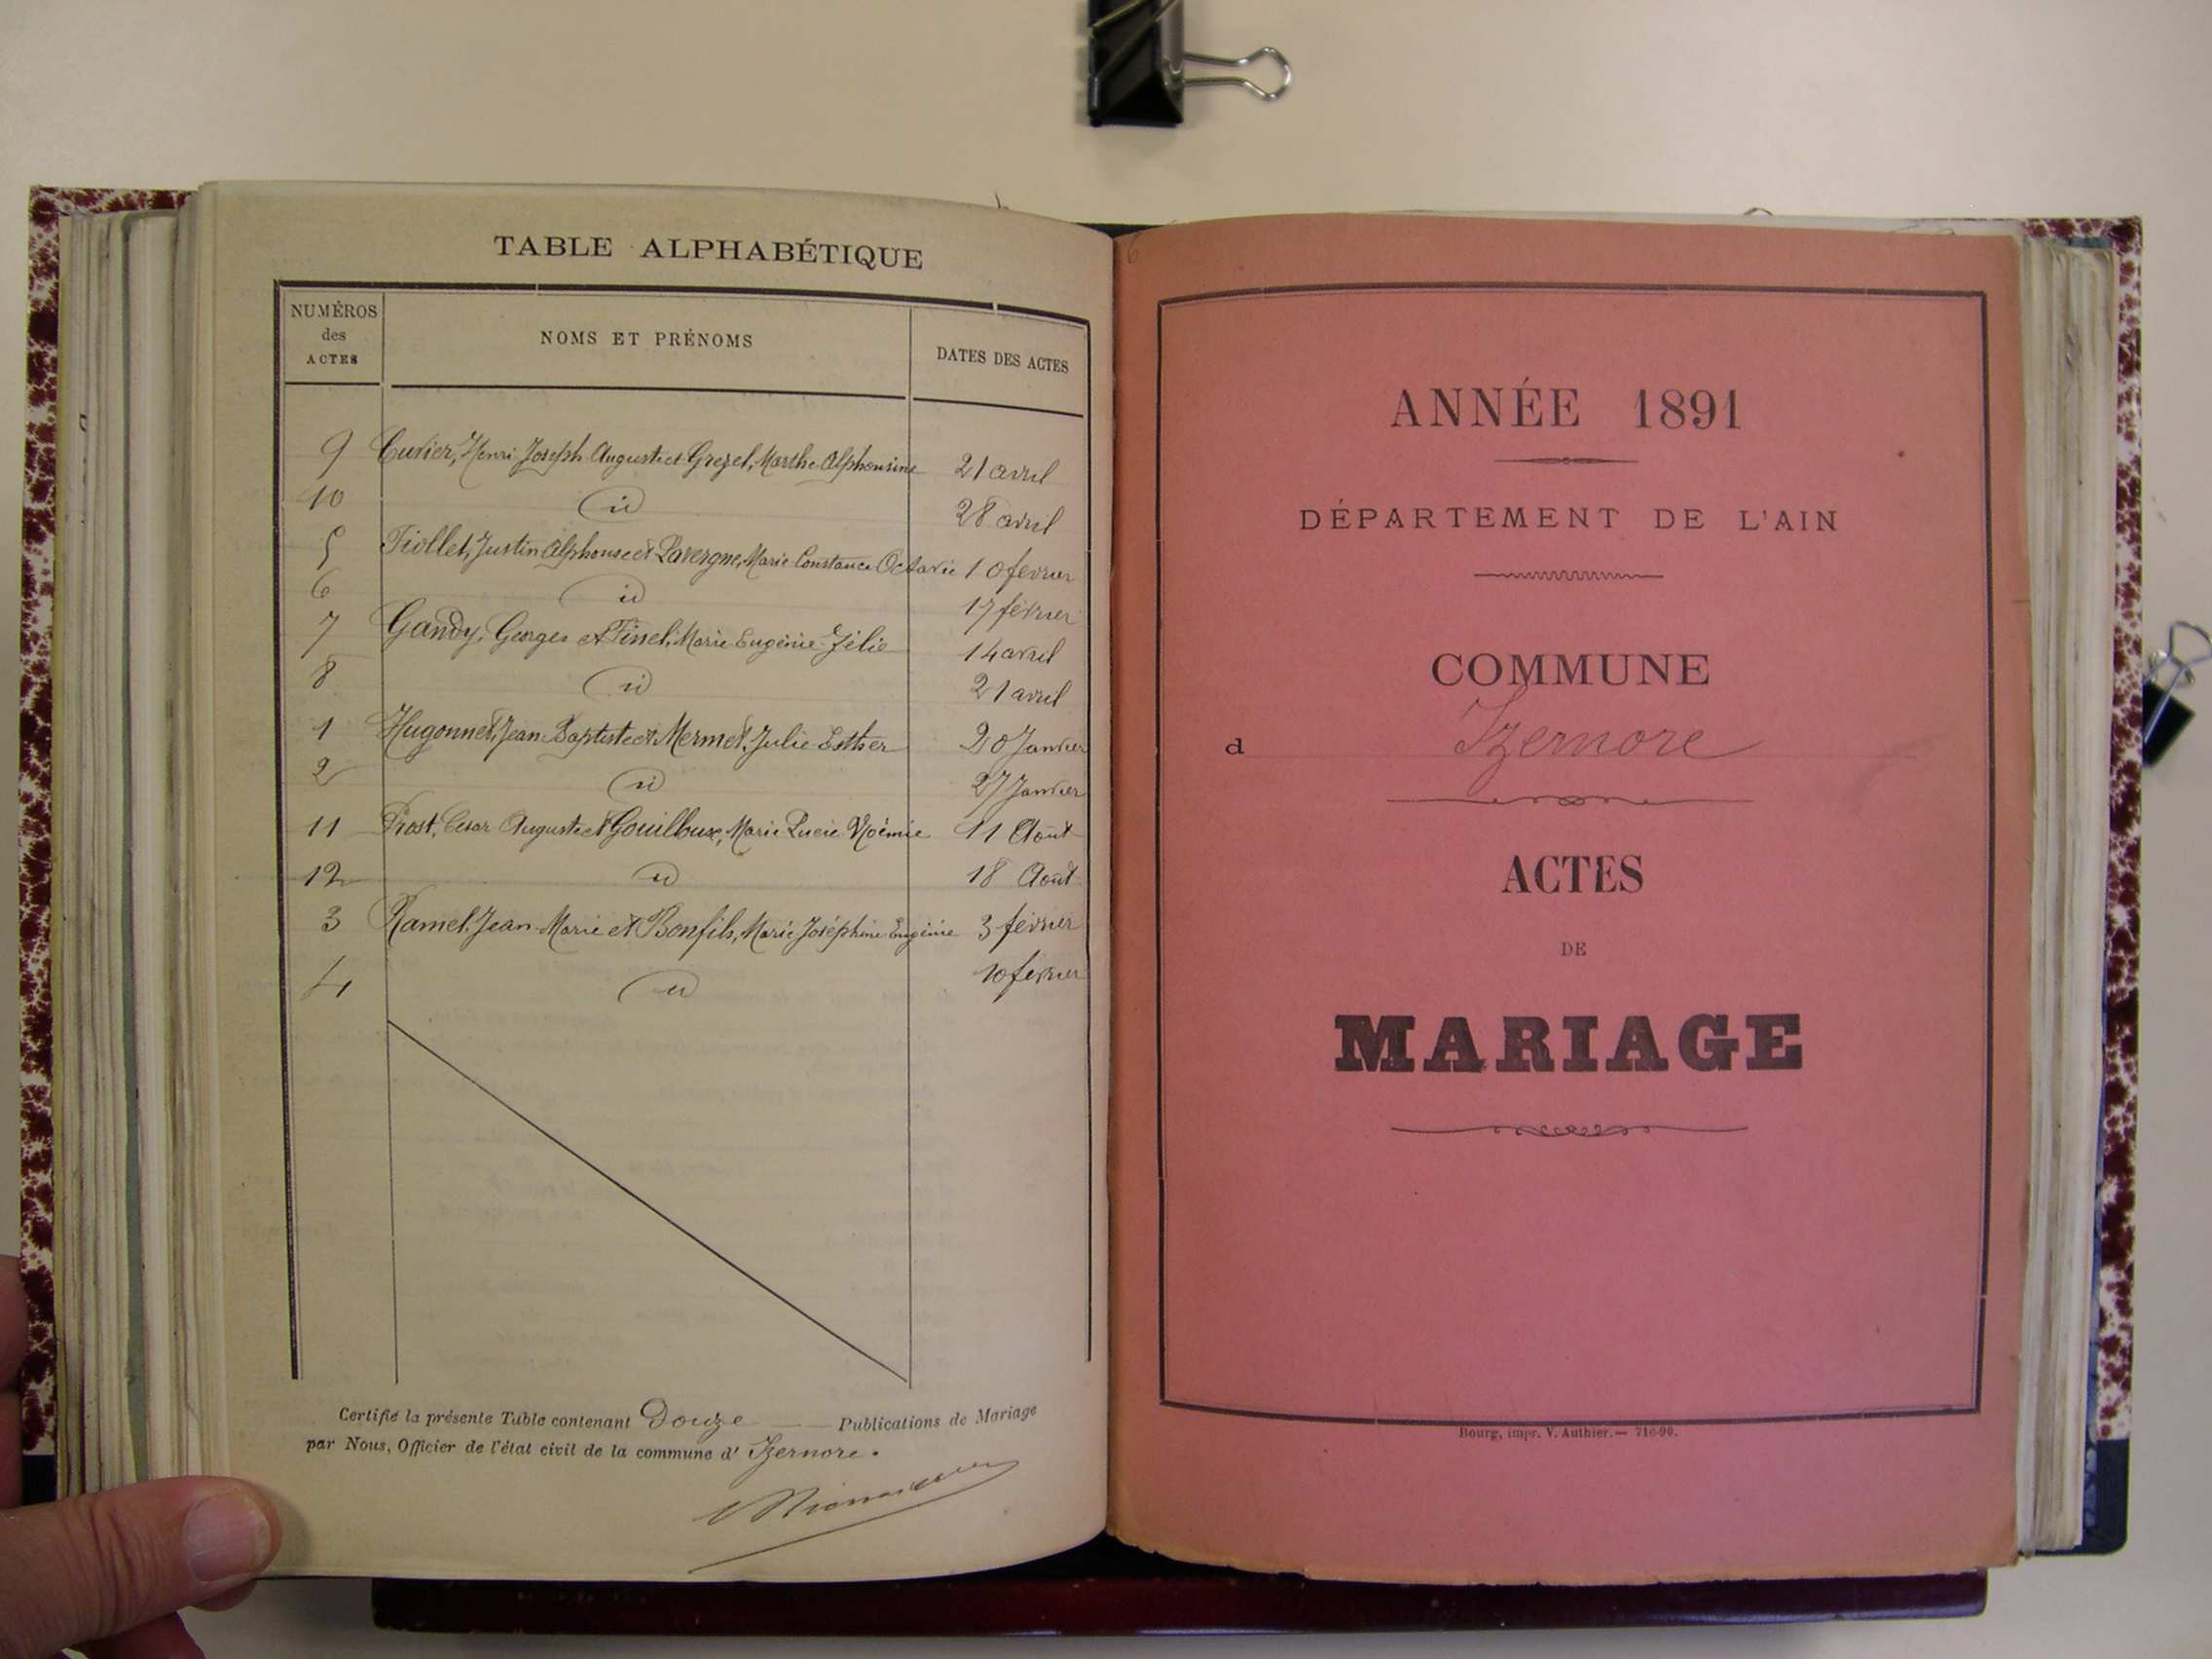 TABLE ALPHABÉTIQUE
NUMÉROS des ACTES
NOMS ET PRÉNOMS
DATES DES ACTES
9 Cuvier, Henri Joseph Auguste et Grezel, Marthe Alphonsine 21 avril
10 id 28 avril
5 Fiollet, Justin Alphonse et Lavergne, Marie Constance Octavie 10 fevrier
6 id 17 février
7 Gandy, Georges et Tinel, Marie Eugénie Zélie 14 avril
8 id 21 avril
1 Hugonnet, Jean Baptiste et Mermet, Julie Esther 20 Janvier
2 id 27 Janvier
11 Prost, César Auguste et Gouilloux, Marie Lucie Noémie 11 Août
12 id 18 Août
3 Ramel, Jean Marie et Bonfils, Marie Joséphine Eugénie 3 février
4 id 10 fevrier
Certifié la présente Table contenant Douze Publications de Mariage
par Nous, Officier de l'état civil de la commune d' Izernore.
ANNÉE 1891
DÉPARTEMENT DE L'AIN
COMMUNE
d Izernore
ACTES
DE
MARIAGE
Bourg, impr. V. Authier.—